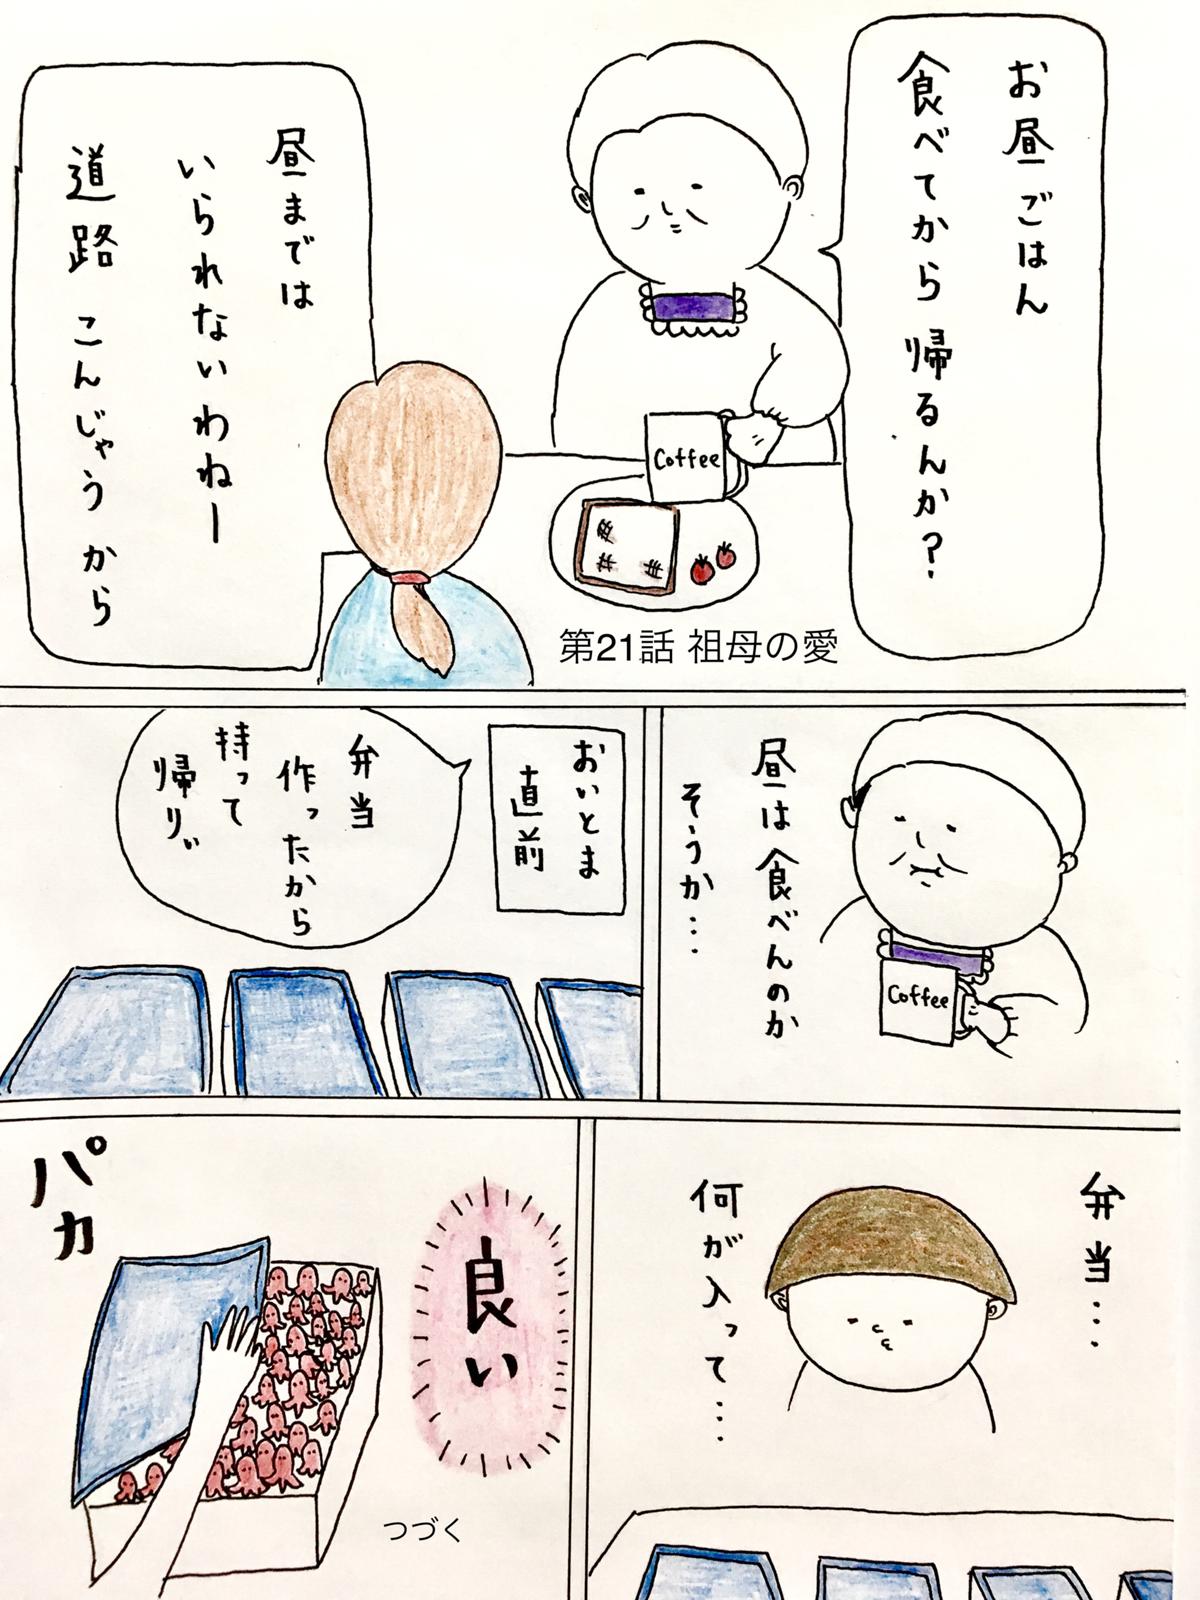 お昼ごはん
食べてから帰るんか?
昼までは
いられないわねー
道路こんじゃうから
Coffee
第21話 祖母の愛
昼は食べんのか
そうか…
Coffee
おいとま
直前
弁当
作ったから
持って
帰りぃ
弁当…
何が入って…
良い
パカ
つづく